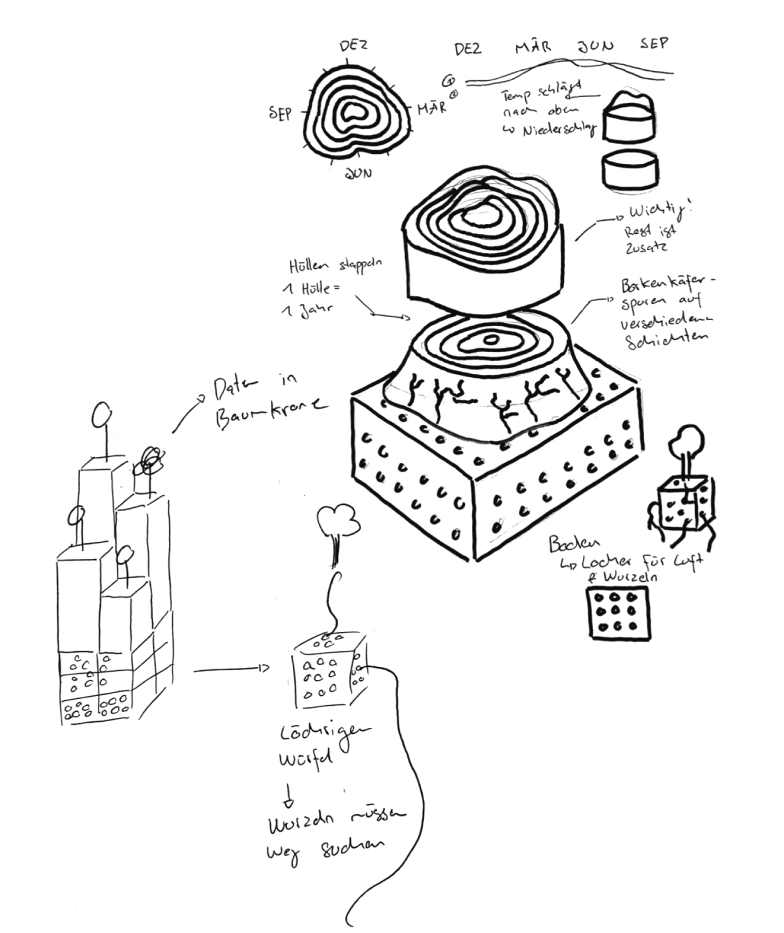 DEZ
SEP
MÄR
JUN
DEZ MÄR JUN SEP
Temp schlägt
nach oben
↳ Niederschlag
Wichtig!
Rest ist
Zusatz
Hüllen stappeln
1 Hülle =
1 Jahr
Borkenkäfer-
spuren auf
verschieden
Schichten
Daten in
Baumkrone
Boden
↳ Löcher für Luft
& Wurzeln
Löchriger
Würfel
Wurzeln müssen
Weg suchen